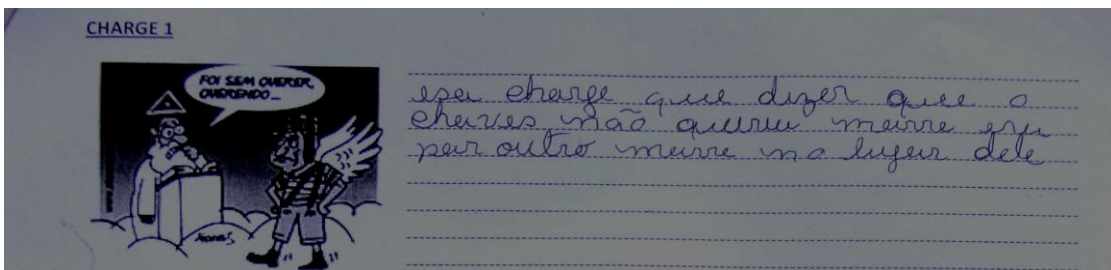 CHARGE 1
FOI SEM QUERER,
QUERENDO...
esa charge que dizer que o
chaves não queria morre era
par outro morre no lugar dele